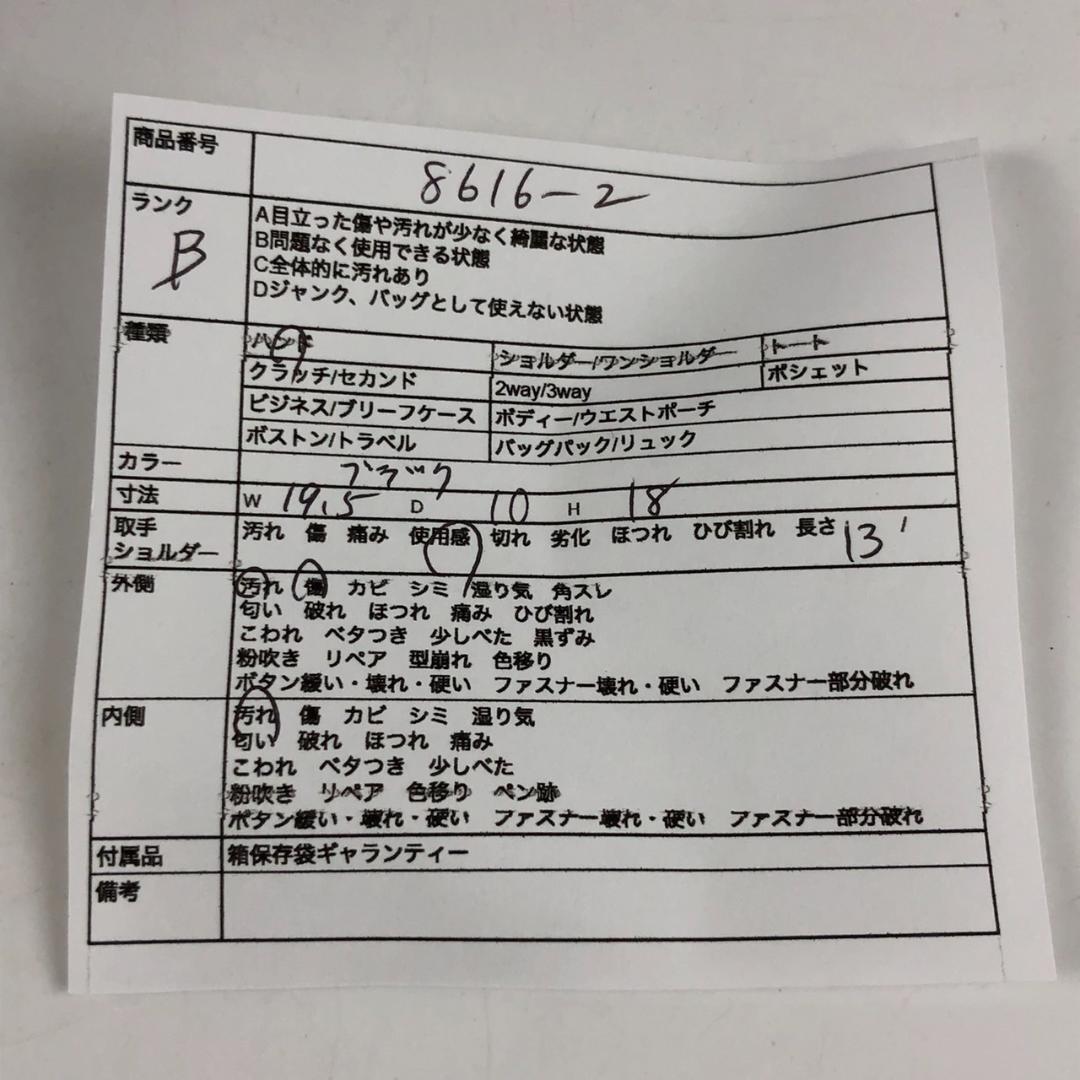 商品番号 8616-2
ランク B
A目立った傷や汚れが少なく綺麗な状態
B問題なく使用できる状態
C全体的に汚れあり
Dジャンク、バッグとして使えない状態
種類 ハンド ショルダー/ワンショルダー トート
クラッチ/セカンド 2way/3way ポシェット
ビジネス/ブリーフケース ボディー/ウエストポーチ
ボストン/トラベル バッグパック/リュック
カラー ブラック
寸法 W 19.5 D 10 H 18
取手 汚れ 傷 痛み 使用感 切れ 劣化 ほつれ ひび割れ 長さ 13
ショルダー
外側 汚れ 傷 カビ シミ 湿り気 角スレ
匂い 破れ ほつれ 痛み ひび割れ
こわれ ベタつき 少しべた 黒ずみ
粉吹き リペア 型崩れ 色移り
ボタン緩い・壊れ・硬い ファスナー壊れ・硬い ファスナー部分破れ
内側 汚れ 傷 カビ シミ 湿り気
匂い 破れ ほつれ 痛み
こわれ ベタつき 少しべた
粉吹き リペア 色移り ペン跡
ボタン緩い・壊れ・硬い ファスナー壊れ・硬い ファスナー部分破れ
付属品 箱保存袋ギャランティー
備考